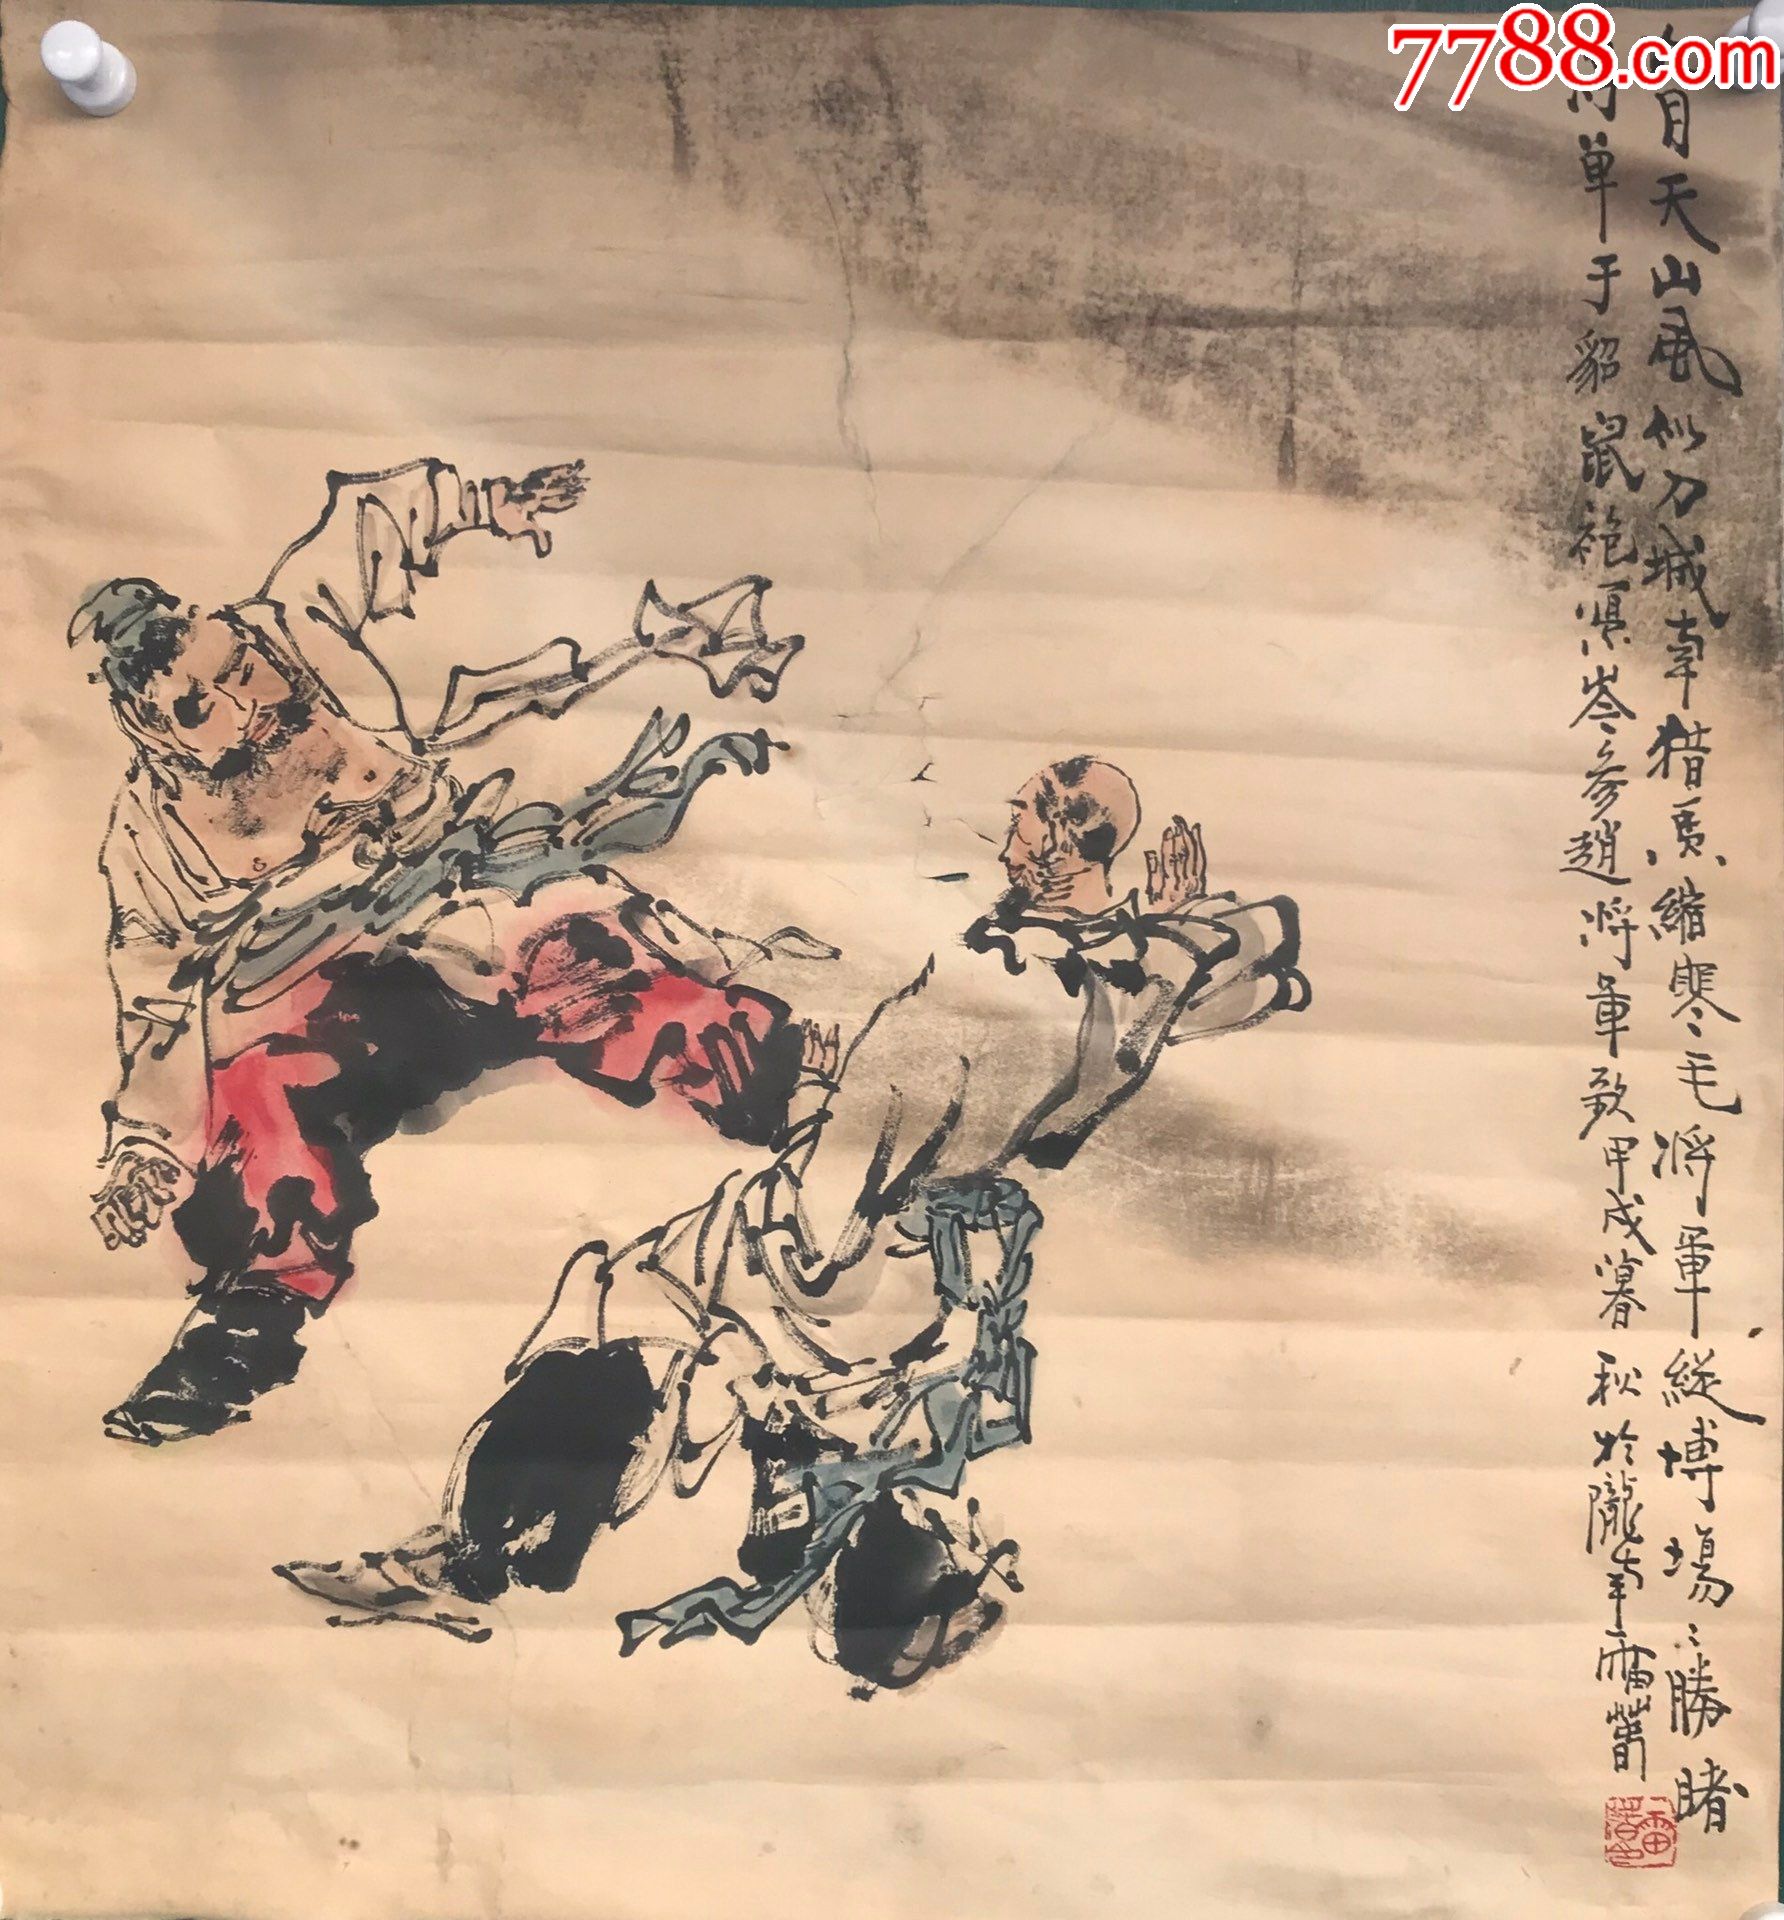 7788.com
月天山風似刀城南猎馬縮寒毛將軍縱博場場勝賭
得單于貂鼠袍 寫岑參趙將軍歌甲戌暮秋於隴南雷